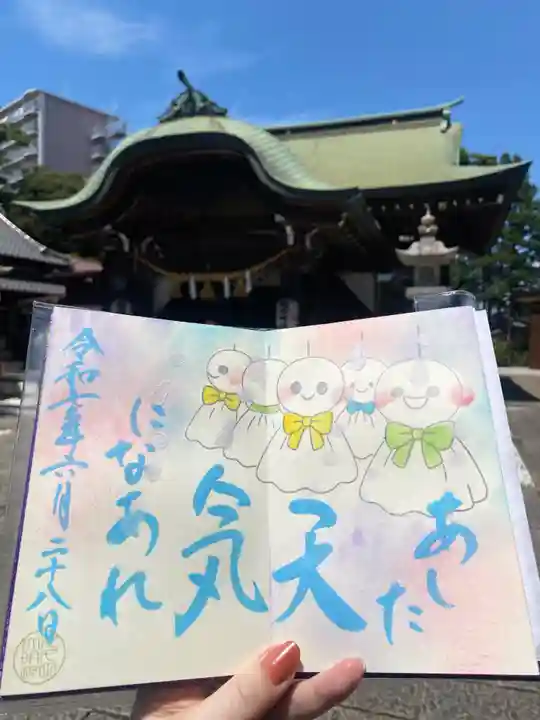 あした
天
気
になあれ
令和七年六月二十八日